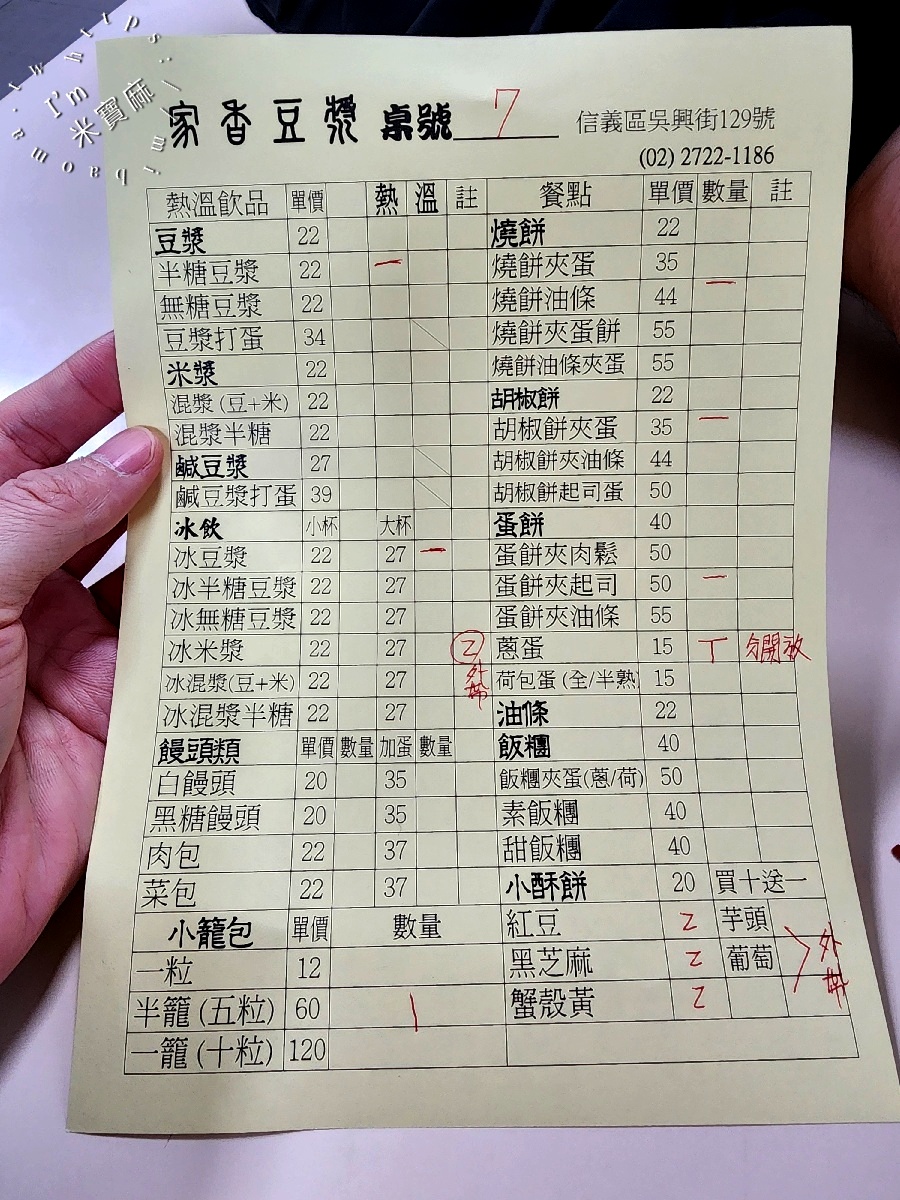 I'm
米寶麻
家香豆漿 桌號 7 信義區吳興街129號
(02) 2722-1186
熱溫飲品 單價 熱 溫 註 餐點 單價 數量 註
豆漿 22 燒餅 22
半糖豆漿 22 一 燒餅夾蛋 35
無糖豆漿 22 燒餅油條 44 一
豆漿打蛋 34 燒餅夾蛋餅 55
米漿 22 燒餅油條夾蛋 55
混漿 (豆+米) 22 胡椒餅 22
混漿半糖 22 胡椒餅夾蛋 35 一
鹹豆漿 27 胡椒餅夾油條 44
鹹豆漿打蛋 39 胡椒餅起司蛋 50
冰飲 小杯 大杯 蛋餅 40
冰豆漿 22 27 一 蛋餅夾肉鬆 50
冰半糖豆漿 22 27 蛋餅夾起司 50 一
冰無糖豆漿 22 27 蛋餅夾油條 55
冰米漿 22 27 2 外帶 蔥蛋 15 丅 分開放
冰混漿(豆+米) 22 27 荷包蛋 (全/半熟) 15
冰混漿半糖 22 27 油條 22
饅頭類 單價 數量 加蛋 數量 飯糰 40
白饅頭 20 35 飯糰夾蛋(蔥/荷) 50
黑糖饅頭 20 35 素飯糰 40
肉包 22 37 甜飯糰 40
菜包 22 37 小酥餅 20 買十送一
小籠包 單價 數量 紅豆 2 芋頭
一粒 12 黑芝麻 2 葡萄 外帶
半籠 (五粒) 60 1 蟹殼黃 2
一籠 (十粒) 120